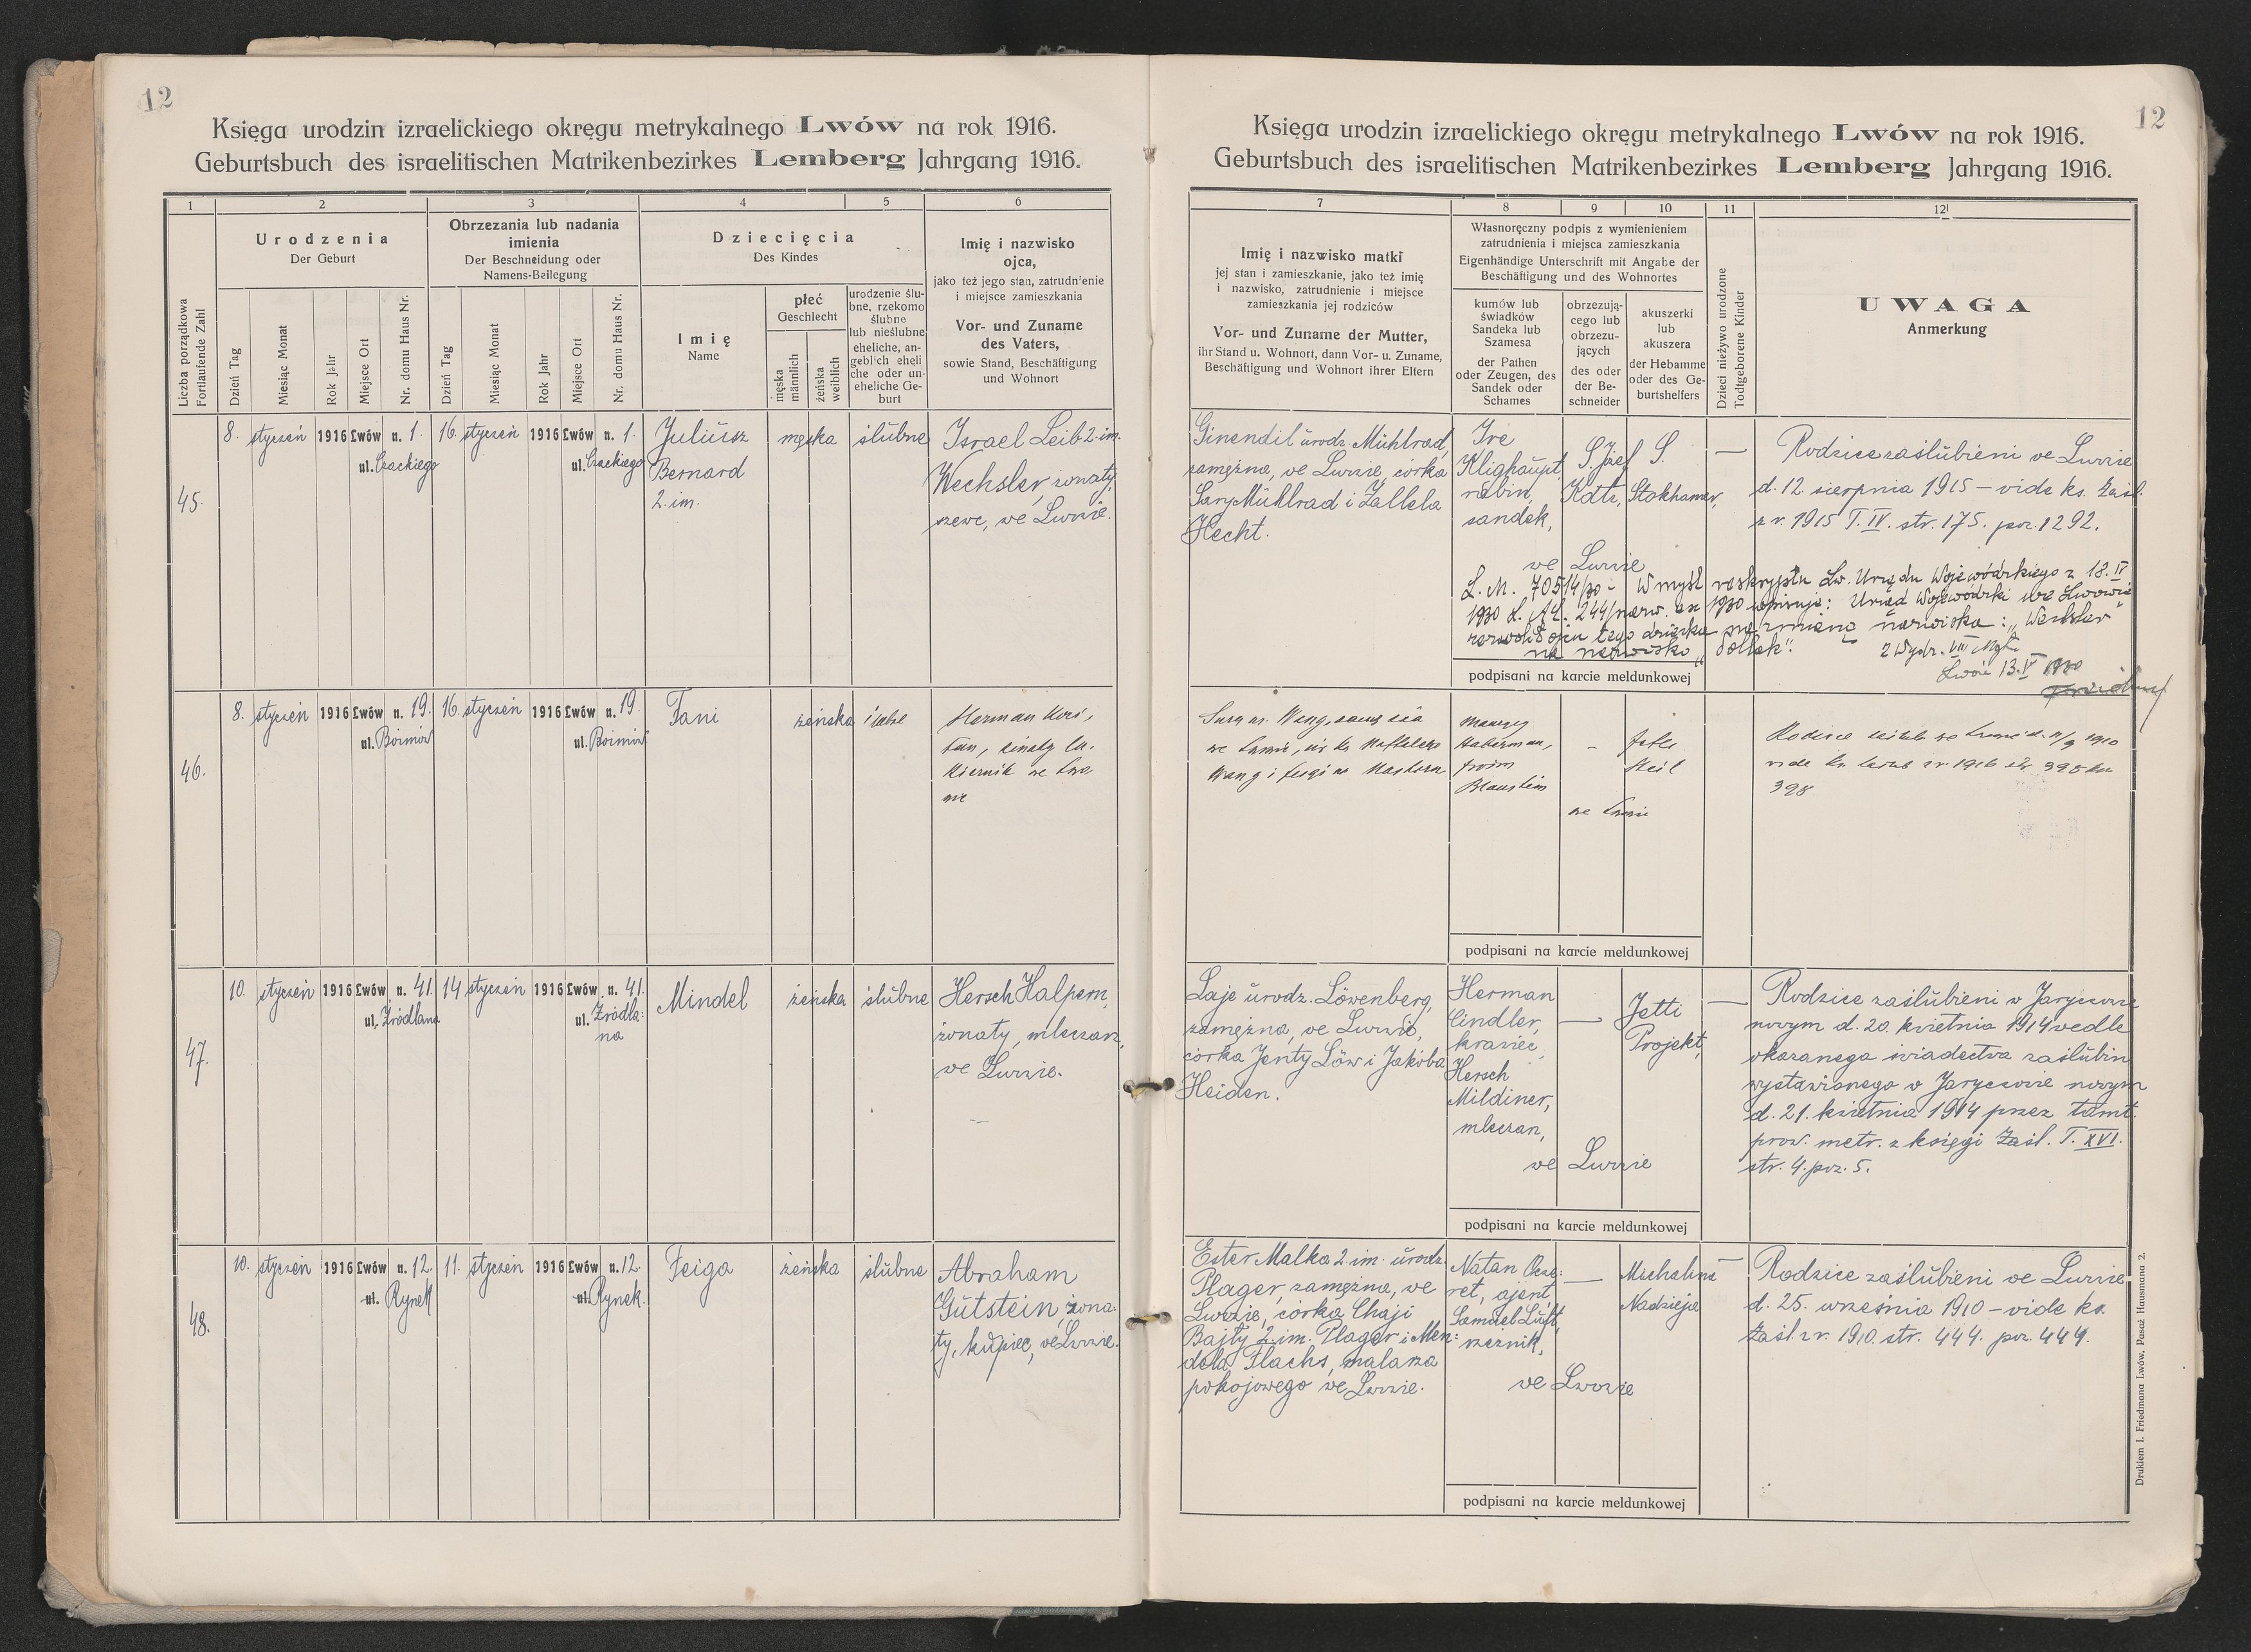 12
Księga urodzin izraelickiego okręgu metrykalnego Lwów na rok 1916.
Geburtsbuch des israelitischen Matrikenbezirkes Lemberg Jahrgang 1916.
1
2
3
4
5
6
Liczba porządkowa
Fortlaufende Zahl
Urodzenia
Der Geburt
Dzień Tag
Miesiąc Monat
Rok Jahr
Miejsce Ort
Nr. domu Haus Nr.
Obrzezania lub nadania
imienia
Der Beschneidung oder
Namens-Beilegung
Dzień Tag
Miesiąc Monat
Rok Jahr
Miejsce Ort
Nr. domu Haus Nr.
Dziecięcia
Des Kindes
Imię
Name
płeć
Geschlecht
męska
männlich
żeńska
weiblich
urodzenie ślu-
bne, rzekomo
ślubne
lub nieślubne
eheliche, an-
geblich eheli
che oder un-
eheliche Ge-
burt
Imię i nazwisko
ojca,
jako też jego stan, zatrudnienie
i miejsce zamieszkania
Vor- und Zuname
des Vaters,
sowie Stand, Beschäftigung
und Wohnort
45.
8. styczeń 1916 Lwów n. 1.
ul. Czackiego
16. styczeń 1916 Lwów n. 1.
ul. Czackiego
Juliusz
Bernard
2. im.
męska
ślubne
Israel Leib 2. im.
Wechsler, żonaty,
szewc, we Lwowie.
46.
8. styczeń 1916 Lwów n. 19.
ul. Boimów
16. styczeń 1916 Lwów n. 19.
ul. Boimów
Fani
żeńska
Herman
we
47.
10. styczeń 1916 Lwów n. 41.
ul. Źródlana
14 styczeń 1916 Lwów n. 41.
ul. Źródla-
na
Mindel
żeńska
ślubne
Hersch Halpern,
żonaty, mleczarz,
we Lwowie.
48.
10. styczeń 1916 Lwów n. 12.
ul. Rynek
11. styczeń 1916 Lwów n. 12.
ul. Rynek.
Feiga
żeńska
ślubne
Abraham
Gutstein, żona-
ty, kupiec, we Lwowie.
12
Księga urodzin izraelickiego okręgu metrykalnego Lwów na rok 1916.
Geburtsbuch des israelitischen Matrikenbezirkes Lemberg Jahrgang 1916.
7
8
9
10
11
12
Imię i nazwisko matki
jej stan i zamieszkanie, jako też imię
i nazwisko, zatrudnienie i miejsce
zamieszkania jej rodziców
Vor- und Zuname der Mutter,
ihr Stand u. Wohnort, dann Vor- u. Zuname,
Beschäftigung und Wohnort ihrer Eltern
Własnoręczny podpis z wymienieniem
zatrudnienia i miejsca zamieszkania
Eigenhändige Unterschrift mit Angabe der
Beschäftigung und des Wohnortes
kumów lub
świadków
Sandeka lub
Szamesa
der Pathen
oder Zeugen, des
Sandek oder
Schames
obrzezują-
cego lub
obrzezu-
jących
des oder
der Be-
schneider
akuszerki
lub
akuszera
der Hebamme
oder des Ge-
burtshelfers
Dzieci nieżywo urodzone
Todtgeborene Kinder
UWAGA
Anmerkung
Ginendil urodz. Mühlrad,
zamężna, we Lwowie, córka
Sary Mühlrad i Zallela
Hecht.
rabin,
sandek,
S. Józef
Katz,
S.
Stokhamer,
we Lwowie
—
Rodzice zaślubieni we Lwowie
d. 12. sierpnia 1915 — vide ks. zaśl.
z r. 1915 T. IV. str. 175. poz. 1292.
L. M. 70514/30 - W myśl reskryptu Lw. Urzędu Wojewódzkiego z 18. IV
1930 wpisuje: Urząd Wojewódzki we Lwowie
zezwolił ojcu tego dziecka na zmianę nazwiska: „Wechsler"
na nazwisko
Lwów 13. V 1930
podpisani na karcie meldunkowej
Maurycy
Haberman,
Froim
Blaustein
-
we Lwowie
Rodzice
398
podpisani na karcie meldunkowej
Laje urodz. Löwenberg,
zamężna, we Lwowie,
córka Jenty Löw i Jakóba
Heiden.
Herman
Cindler,
krawiec,
Hersch
Mildiner,
mleczarz,
—
Jetti
Projekt,
we Lwowie
—
Rodzice zaślubieni w Jaryczowie
nowym d. 20. kwietnia 1914 wedle
okazanego świadectwa zaślubin
wystawionego w Jaryczowie nowym
d. 21. kwietnia 1914 przez tamt.
prow. metr. z księgi zaśl. T. XVI.
str. 4. poz. 5.
podpisani na karcie meldunkowej
Ester Malka 2. im. urodz.
Plager, zamężna, we
Lwowie, córka Chaji
Bajty 2. im. Plager i Men-
dela Flachs, malarza
pokojowego we Lwowie.
Natan Ocze-
ret, ajent,
Samuel Luft,
rzeźnik,
—
Michalina
Nadzieja
we Lwowie
—
Rodzice zaślubieni we Lwowie
d. 25. września 1910 — vide ks.
zaśl. z r. 1910. str. 444. poz. 444.
podpisani na karcie meldunkowej
Drukiem I. Friedmana Lwów, Pasaż Hausmana 2.